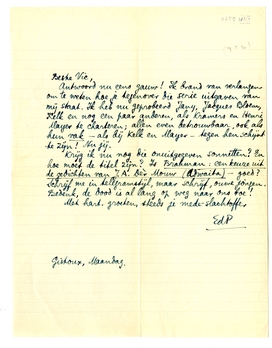 Beste Vic,
Antwoord nu eens gauw! Ik brand van verlangen
om te weten hoe je tegenover die serie uitgaven van
mij staat. Ik heb nu geprobeerd Jany, Jacques Bloem,
Kelk en nog een paar anderen, als Kramers en Henri
Mayer te charteren; allen even betrouwbaar, ook als
hem vak - als bij Kelk en Mayer - tegen hem schijnt
te zijn! Nu jij.
Krijg ik nu nog die onuitgegeven sonnetten? En
hoe moet de titel zijn? Is Brahman: een keuze uit
de gedichten van J.A. Dèr Mouw (Adwaita) - goed?
Schrijf me in telegramstijl, maar schrijf, ouwe jongen.
Bedenk, de dood is al lang op weg naar ons toe!
Met hart. groeten, steeds je mede-slachtoffer
EdP
Gistoux, Maandag.